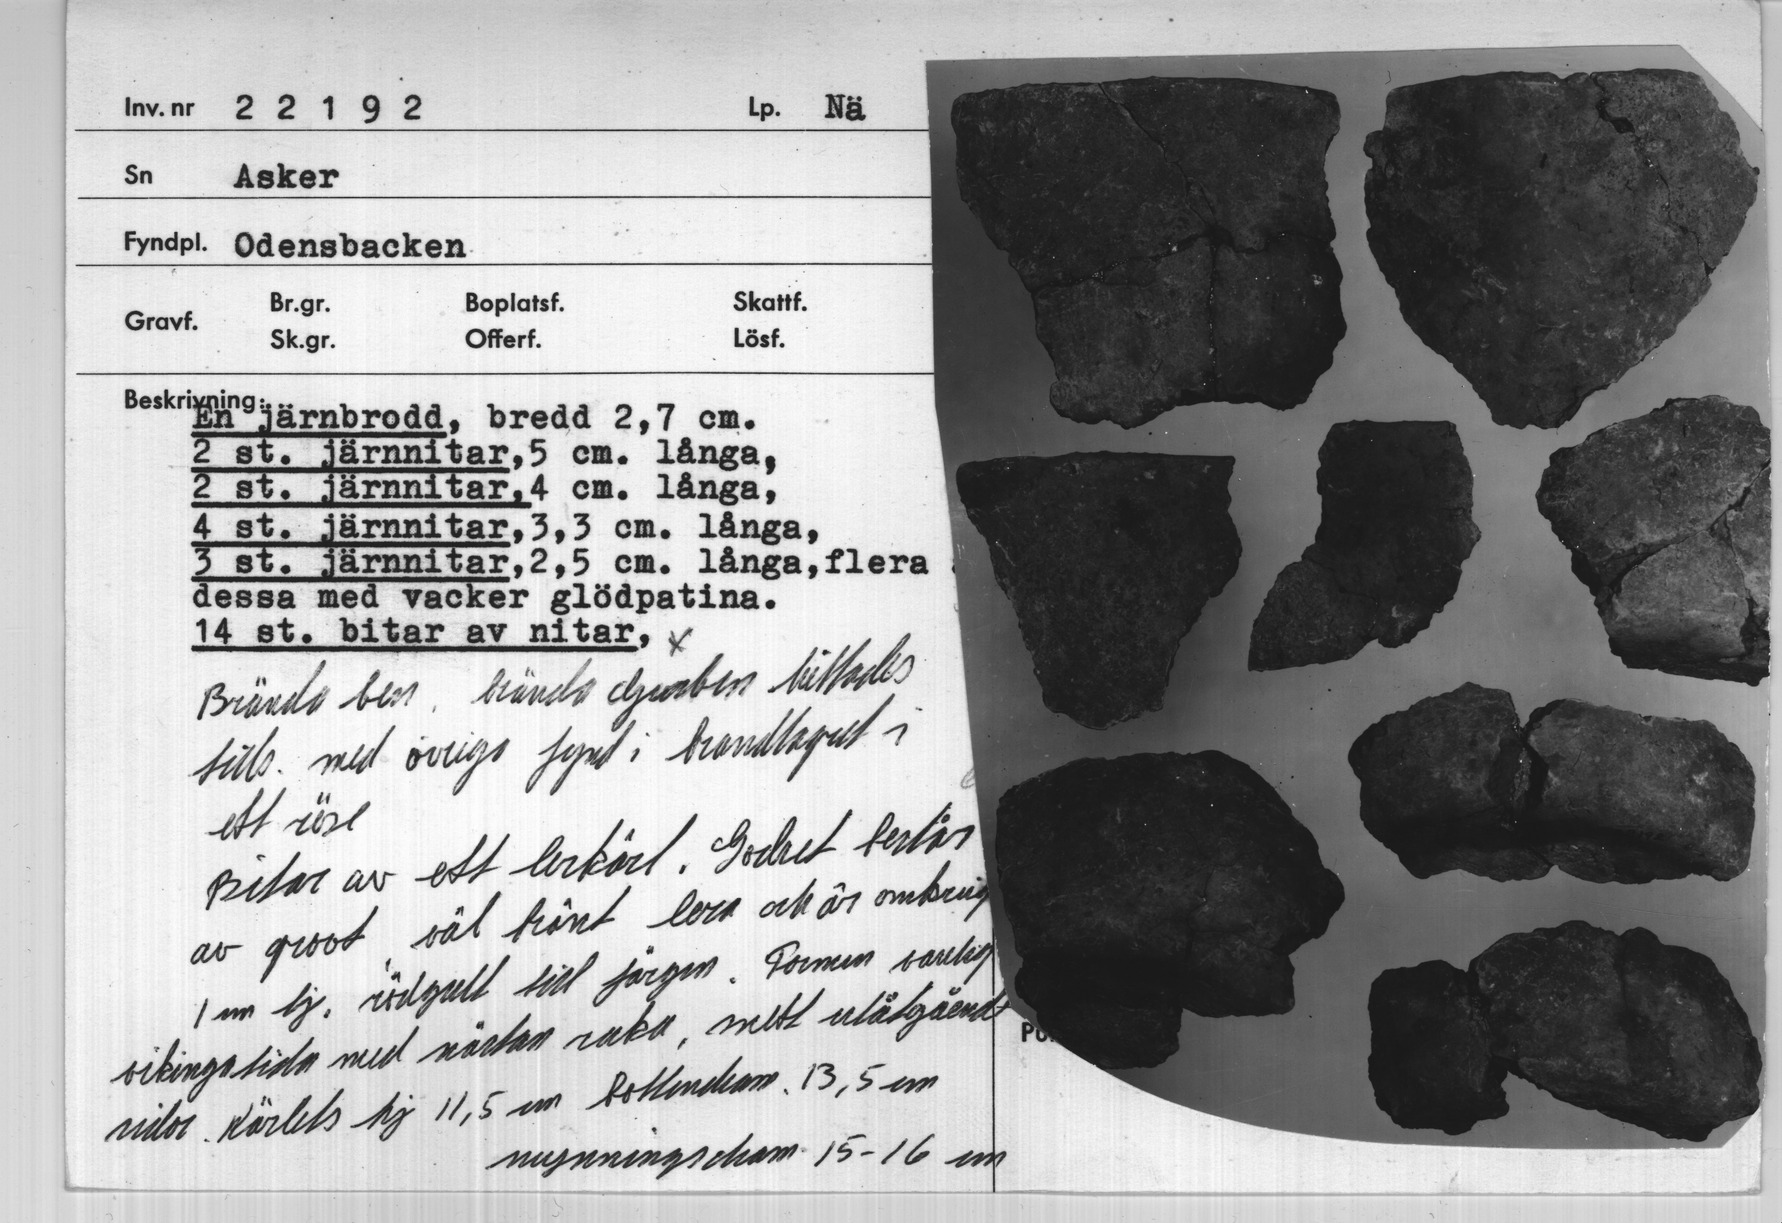 Inv. nr 22192 Lp. Nä
Sn Asker
Fyndpl. Odensbacken
Gravf. Br.gr. Boplatsf. Skattf.
Sk.gr. Offerf. Lösf.
Beskrivning:
En järnbrodd, bredd 2,7 cm.
2 st. järnnitar,5 cm. långa,
2 st. järnnitar,4 cm. långa,
4 st. järnnitar,3,3 cm. långa,
3 st. järnnitar,2,5 cm. långa,flera
dessa med vacker glödpatina.
14 st. bitar av nitar, x
Brända ben, brända djurben hittades
tills. med övriga fynd i brandlagret i
ett röse
Bitar av ett lerkärl. Godset består
av grovt, väl bränt lera och är omkring
1 cm tj. rödgult till färgen. Formen vanlig
vikingatida med nästan raka, svagt utåtgående
sidor. Kärlets hj 11,5 cm bottendiam. 13,5 cm
mynningsdiam 15-16 cm